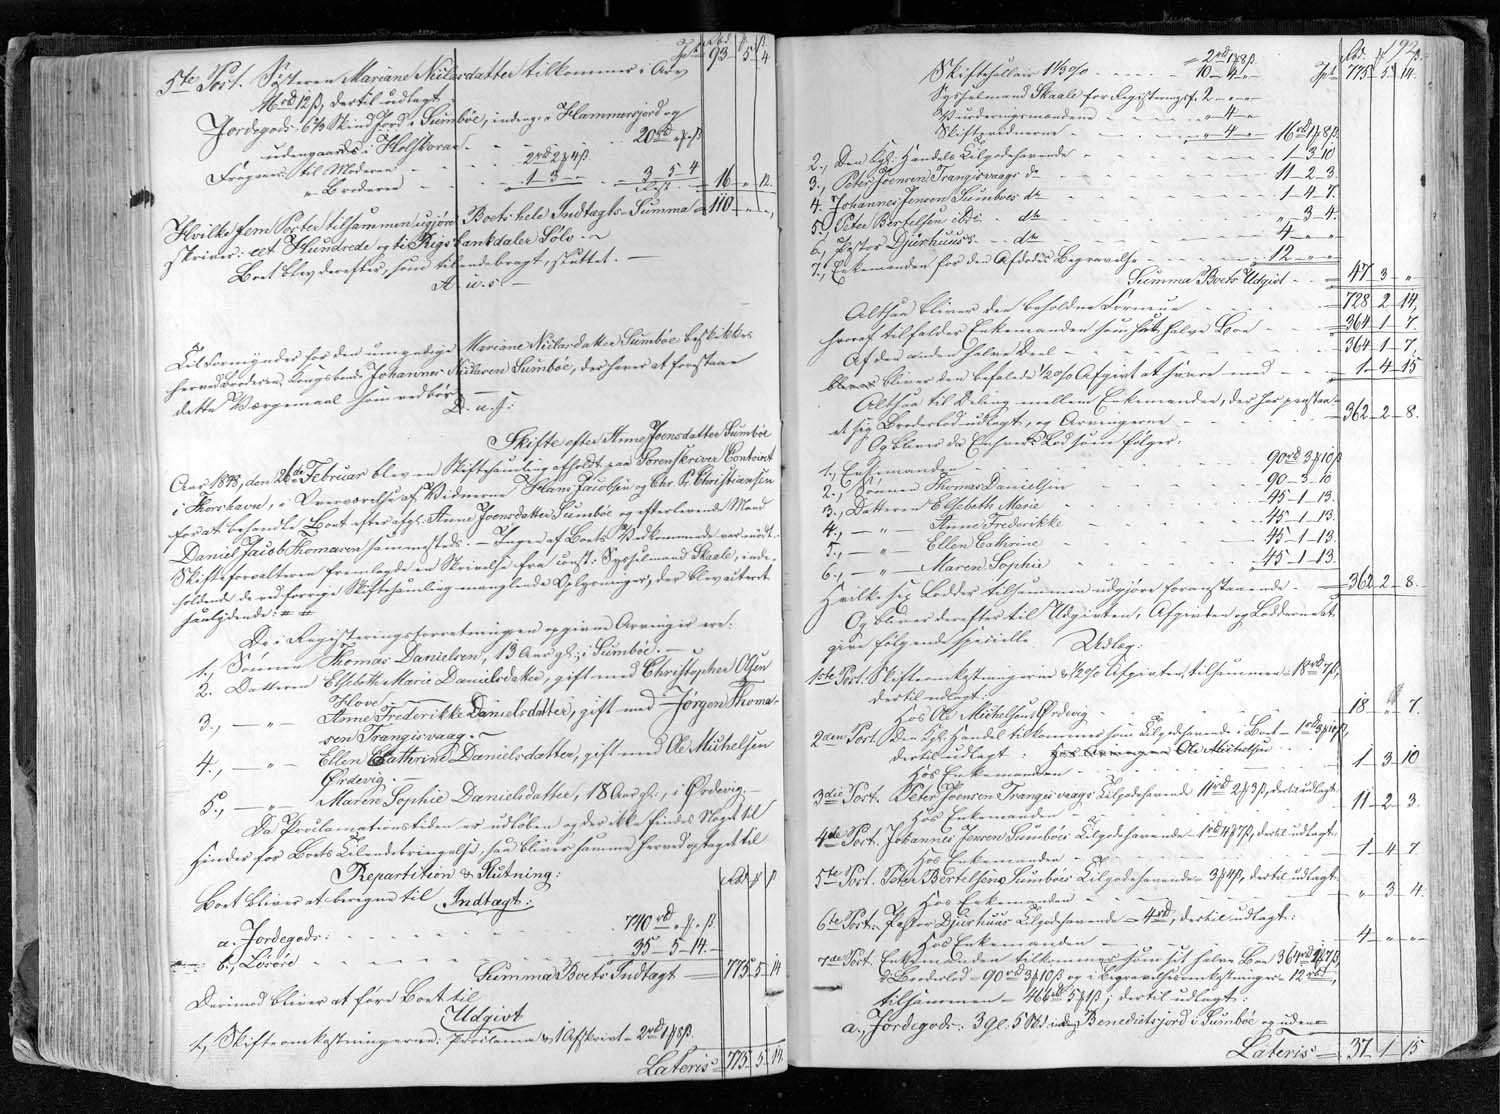 Rbd. ₰ ß
Tpt. 93 5 4
5te Post. Søsteren Mariane Neilsdatter tilkommer i Arv
16rd 12ß, dertil udlagt
Jordegods: 6⅔ Skind Jord i Sumbøe, indeng. i Hammersjord og
udengaards i Holskoran - - - 20rd „ ₰ „ ß
Fragaaer til Moderen - - 2rd 2₰ 4ß
„ Broderen - - 1 - 3 - „ - - 3 - 5 - 4
Rest - 16 - „ - 12.
Hvilke fem Poster tilsammen udgjøre Boets hele Indtægts-Summa = 110 - „ - „
skriver: eet Hundrede og ti Rigsbankdaler Sølv. -
Boet blev derefter, som tilendebragt, sluttet. -
D. u. s. -
Til Formynder for den umyndige Mariane Neilsdatter Sumbøe beskikkes
herved Broderen, Kongsbonde Johannes Neilsen Sumbøe, der haver at forestaae
dette Værgemaal som vedbør. -
D. u. s:
Skifte efter Anne Joensdatter Sumbøe
Aar 1848, den 26de Februar blev en Skiftesamling afholdt paa Sorenskriver Contoiret
i Thorshavn, i Overværelse af Vidnerne Hans Jacobsen og Chr. P. Christiansen
for at behandle Boet efter afg: Anne Joensdatter Sumbøe og efterlevende Mand
Daniel Jacob Thomasen sammesteds. - Ingen af Boets Vedkommende var mødt.
Skifteforvalteren fremlagde en Skrivelse fra const: Sysselmand Skaale, inde-
holdende de ved forrige Skiftesamling manglende Oplysninger, der blev acteret
saalydende: # #
De i Registreringsforretningen opgivne Arvinger ere:
1., Sønnen Thomas Danielsen, 13 Aar gl:, i Sumbøe. -
2. Datteren Elsebeth Marie Danielsdatter, gift med Christopher Olsen
Hove
3., - „ - Anne Frederikke Danielsdatter, gift med Jørgen Thoma-
sen Trangisvaag. -
4., - „ - Ellen Cathrine Danielsdatter, gift med Ole Michelsen
Ørdevig. -
5., - „ - Maren Sophie Danielsdatter, 18 Aar gl., i Ørdevig. -
Da Proclamationstiden er udløben og der ikke findes Noget til
Hinder for Boets Tilendebringelse, saa bliver samme herved optaget til
Repartition & Slutning:
Rbd ₰ ß
Boet bliver at beregne til Indtægt:
a. Jordegods: - - - 740rd „ ₰ „ ß
b., Løsøre - - - 35 - 5 - 14. -
Summa Boets Indtægt = 775 5 14
Derimod bliver at føre Boet til
Udgivt
1., Skifteomkostningerne: Proclama & 1 Afskrivt = 2rd 1₰ 8ß.
Lateris = 775 5 14.
192.
Rbd. ₰ ß.
= 2rd 1₰ 8ß.
Skiftesallair 1⅓% - - - 10 - 4 - „ Tpt. 775 5 14.
Sysselmand Skaale for Registrering s. 2 - „ - „
Vurderingsmændene - - „ - 4 - „
Skiftevidnerne - - - „ - 4 - „ 16rd 1₰ 8ß
2., Den kgl: Handels Tilgodehavende - - - 1 - 3 - 10
3., Peter Joensen Trangisvaags do - - - 11 - 2 - 3.
4. Johannes Jensen Sumboes do - - - 1 - 4 - 7.
5., Peter Bertelsen ibid: - do - - - „ 3 - 4.
6., Pastor Djurhuus's - do - - - 4 „ „
7., Enkemanden for den Afdødes Begravelse - - - 12 - „ - „
Summa Boets Udgivt - - 47 3 „
Altsaa bliver den beholdne Formue - - - 728 2 14,
hvoraf tilfalder Enkemanden som sin halve Boe - - 364 1 7.
Af den anden halve Deel - - - 364 - 1 - 7.
bliver den befalede ½% Afgivt at svare med - - - 1 - 4 - 15
Altsaa til Deling mellem Enkemanden, der har paastaa-
et sig Broderlod udlagt, og Arvingerne - - - 362 - 2 - 8.
Og bliver da Enhvers Lod som følger:
1., Enkemanden - - - 90rd 3₰ 10ß
2., Sønnen Thomas Danielsen - - - 90 - 3 - 10
3., Datteren Elsebeth Marie - - - 45 - 1 - 13.
4., - „ - Anne Frederikke - - - 45 - 1 - 13.
5., - „ - Ellen Cathrine - - - 45 - 1 - 13.
6., - „ - Maren Sophie - - - 45 - 1 - 13.
Hvilke sex Lodder tilsammen udgjøre foranstaaende - - 362 - 2 - 8.
Og bliver derefter til Udgivten, Afgivten og Lodderne at
give følgende specielle Udlæg:
1ste Post. Skifteomkostningerne & ½% Afgivten, tilsammen = 18rd 7ß,
dertil udlagt:
Hos Ole Michelsen Ørdevig - - - 18 „ 7.
2den Post. Den kgl. Handel tilkommer som Tilgodehavende i Boet - 1rd 3₰ 10ß,
dertil udlagt: Hos Arvingen Ole Michelsen
Hos Enkemanden - - - 1 3 10
3die Post. Peter Joensen Trangisvaags Tilgodehavende 11rd 2₰ 3ß, dertil udlagt:
Hos Enkemanden - - - 11 - 2 - 3.
4de Post. Johannes Jensen Sumboes Tilgodehavende - 1rd 4₰ 7ß, dertil udlagt:
Hos Enkemanden - - - 1 - 4 - 7
5te Post. Peter Bertelsens Sumboes Tilgodehavende - 3₰ 4ß, dertil udlagt:
Hos Enkemanden - - - „ 3 - 4.
6te Post. Pastor Djurhuus Tilgodehavende = 4rd, dertil udlagt:
Hos Enkemanden - - - 4 - „ - „
7de Post. Enkemanden tilkommer som sit halve Boe 364rd 1₰ 7ß
& Broderlod - 90rd 3₰ 10ß og i Begravelsesomkostninger - 12rd,
tilsammen = 466rd 5₰ 1ß; dertil udlagt:
a., Jordegods: 3 gl. 5 Sk. indeng. Benedictsjord i Sumbøe og uden=
Lateris = 37 - 1 - 15